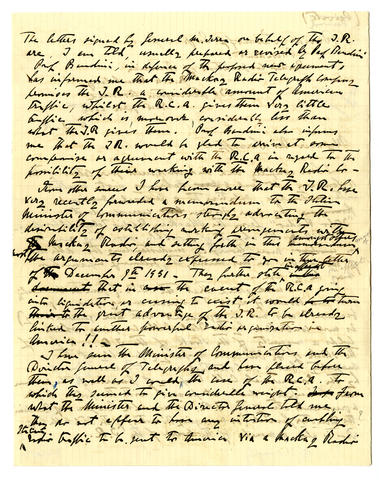 The letters signed by General on behalf of the I.R.
are, I am told, usually prepared or revised by Prof Bandini
Prof. Bandini, in defence of the proposed new agreement
has informed me that the Mackay Radio Telegraph Company
promises the I.R. a considerable amount of American
traffic, whilst the R.C.A. gives them very little
traffic which is moreover considerably less than
what the I.R. gives them. Prof Bandini also informs
me that the I.R. would be glad to arrive at some
compromise or agreement with the R.C.A. in regard to the
possibility of their working with the Mackay Radio Co -
From other sources I have learnt that the I.R. have
very recently forwarded a memorandum to the Italian
Minister of Communications strongly advocating the
desirability of establishing working arrangements with
Mackay Radio, and setting forth in this
the arguments already expressed to you in their letter
of December 9th 1931 - They further state
that in the event of the R.C.A. going
into liquidation or ceasing to exist it would
the great advantage of the I.R. to be already
linked to another powerful radio organization in
America!! -
I have seen the Minister of Communications and the
Director General of Telegraphs and have placed before
them, as well as I could, the case of the R.C.A. to
which they seemed to give considerable weight. From
what the Minister and the Director General told me
they do not appear to have any intention of enabling
radio traffic to be sent to America via a Mackay Radio